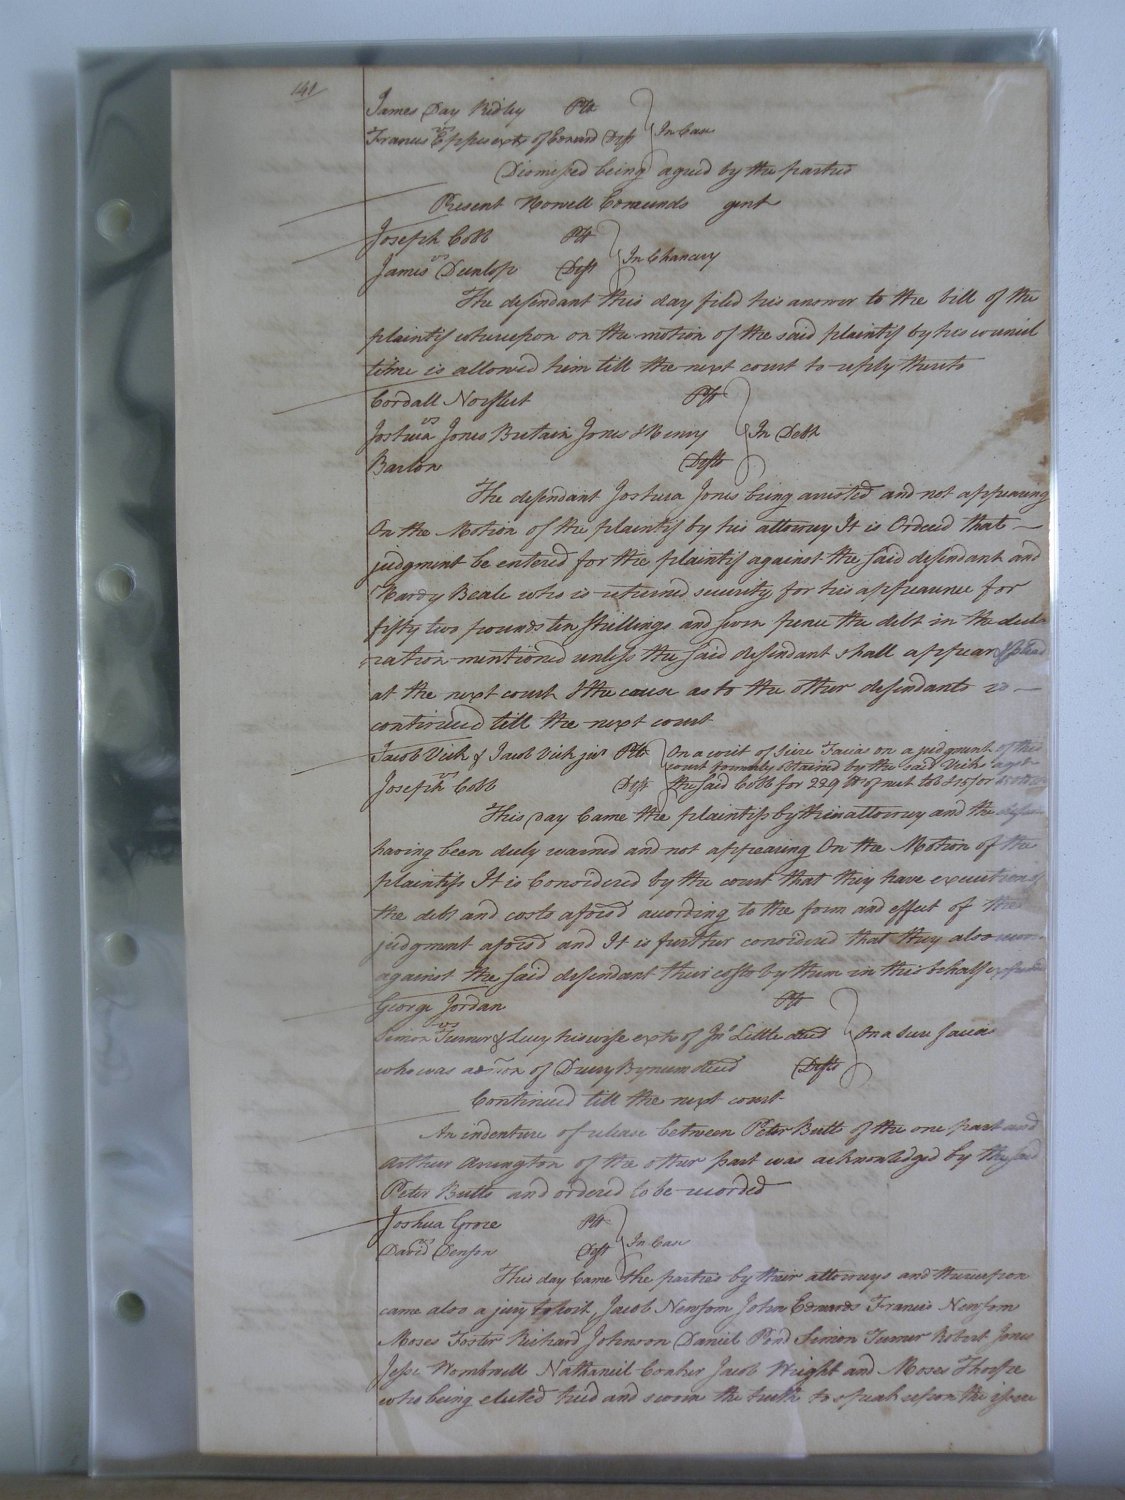 141
James Day Ridley Plt
vs In Case
Francis Eppes exts of Edward Deft
Dismissed being agreed by the parties
Present Howell Edmunds gent
Joseph Cobb Plt
vs In Chancery
James Dunlop Deft
The defendant this day filed his answer to the bill of the
plaintif whereupon on the motion of the said plaintif by his councel
time is allowed him till the next court to reply thereto
Cordall Norfleet Plt
vs
Joshua Jones Britain Jones & Henry In Debt
Barlow Defts
The defendant Joshua Jones being arrested and not appearing
On the Motion of the plaintif by his attorney It is Ordered that
judgment be entered for the plaintif against the said defendant and
Hardy Beale who is returned security for his appearance for
fifty two pounds ten shillings and seven pence the debt in the decla
ration mentioned unless the said defendant shall appear & plead
at the next court & the cause as to the other defendants is
continued till the next court
Jacob Vick & Jacob Vick jur Plts On a writ of Scire Facias on a judgment of this
vs court formerly obtained by the said Vicks agst
Joseph Cobb Deft the said Cobb for 229 lbs of net tobo & 15/ or
This Day Came the plaintifs by their attorney and the
having been duly warned and not appearing On the Motion of the
plaintifs It is Considered by the court that they have execution of
the debt and costs aforesd according to the form and effect of the
judgment aforesd and It is further considered that they also recover
against the said defendant their costs by them in this behalf expended
George Jordan Plt
vs
Simon Turner & Lucy his wife exts of Jno Little decd On a scire facias
who was admon of Drury Bynum decd Defts
Continued till the next court
An indenture of release between Peter Butts of the one part and
Arthur Arrington of the other part was acknowledged by the said
Peter Butts and ordered to be recorded
Joshua Grose Plt
vs In Case
David Denson Deft
This day Came the parties by their attorneys and thereupon
came also a jury towit, Jacob Newsom John Edwards Francis Newsom
Moses Foster Richard Johnson Daniel Pond Simon Turner Robert Jones
Jesse Wombwell Nathaniel Coaker Jacob Wright and Moses Thorpe
who being elected tried and sworn the truth to speak upon the issue